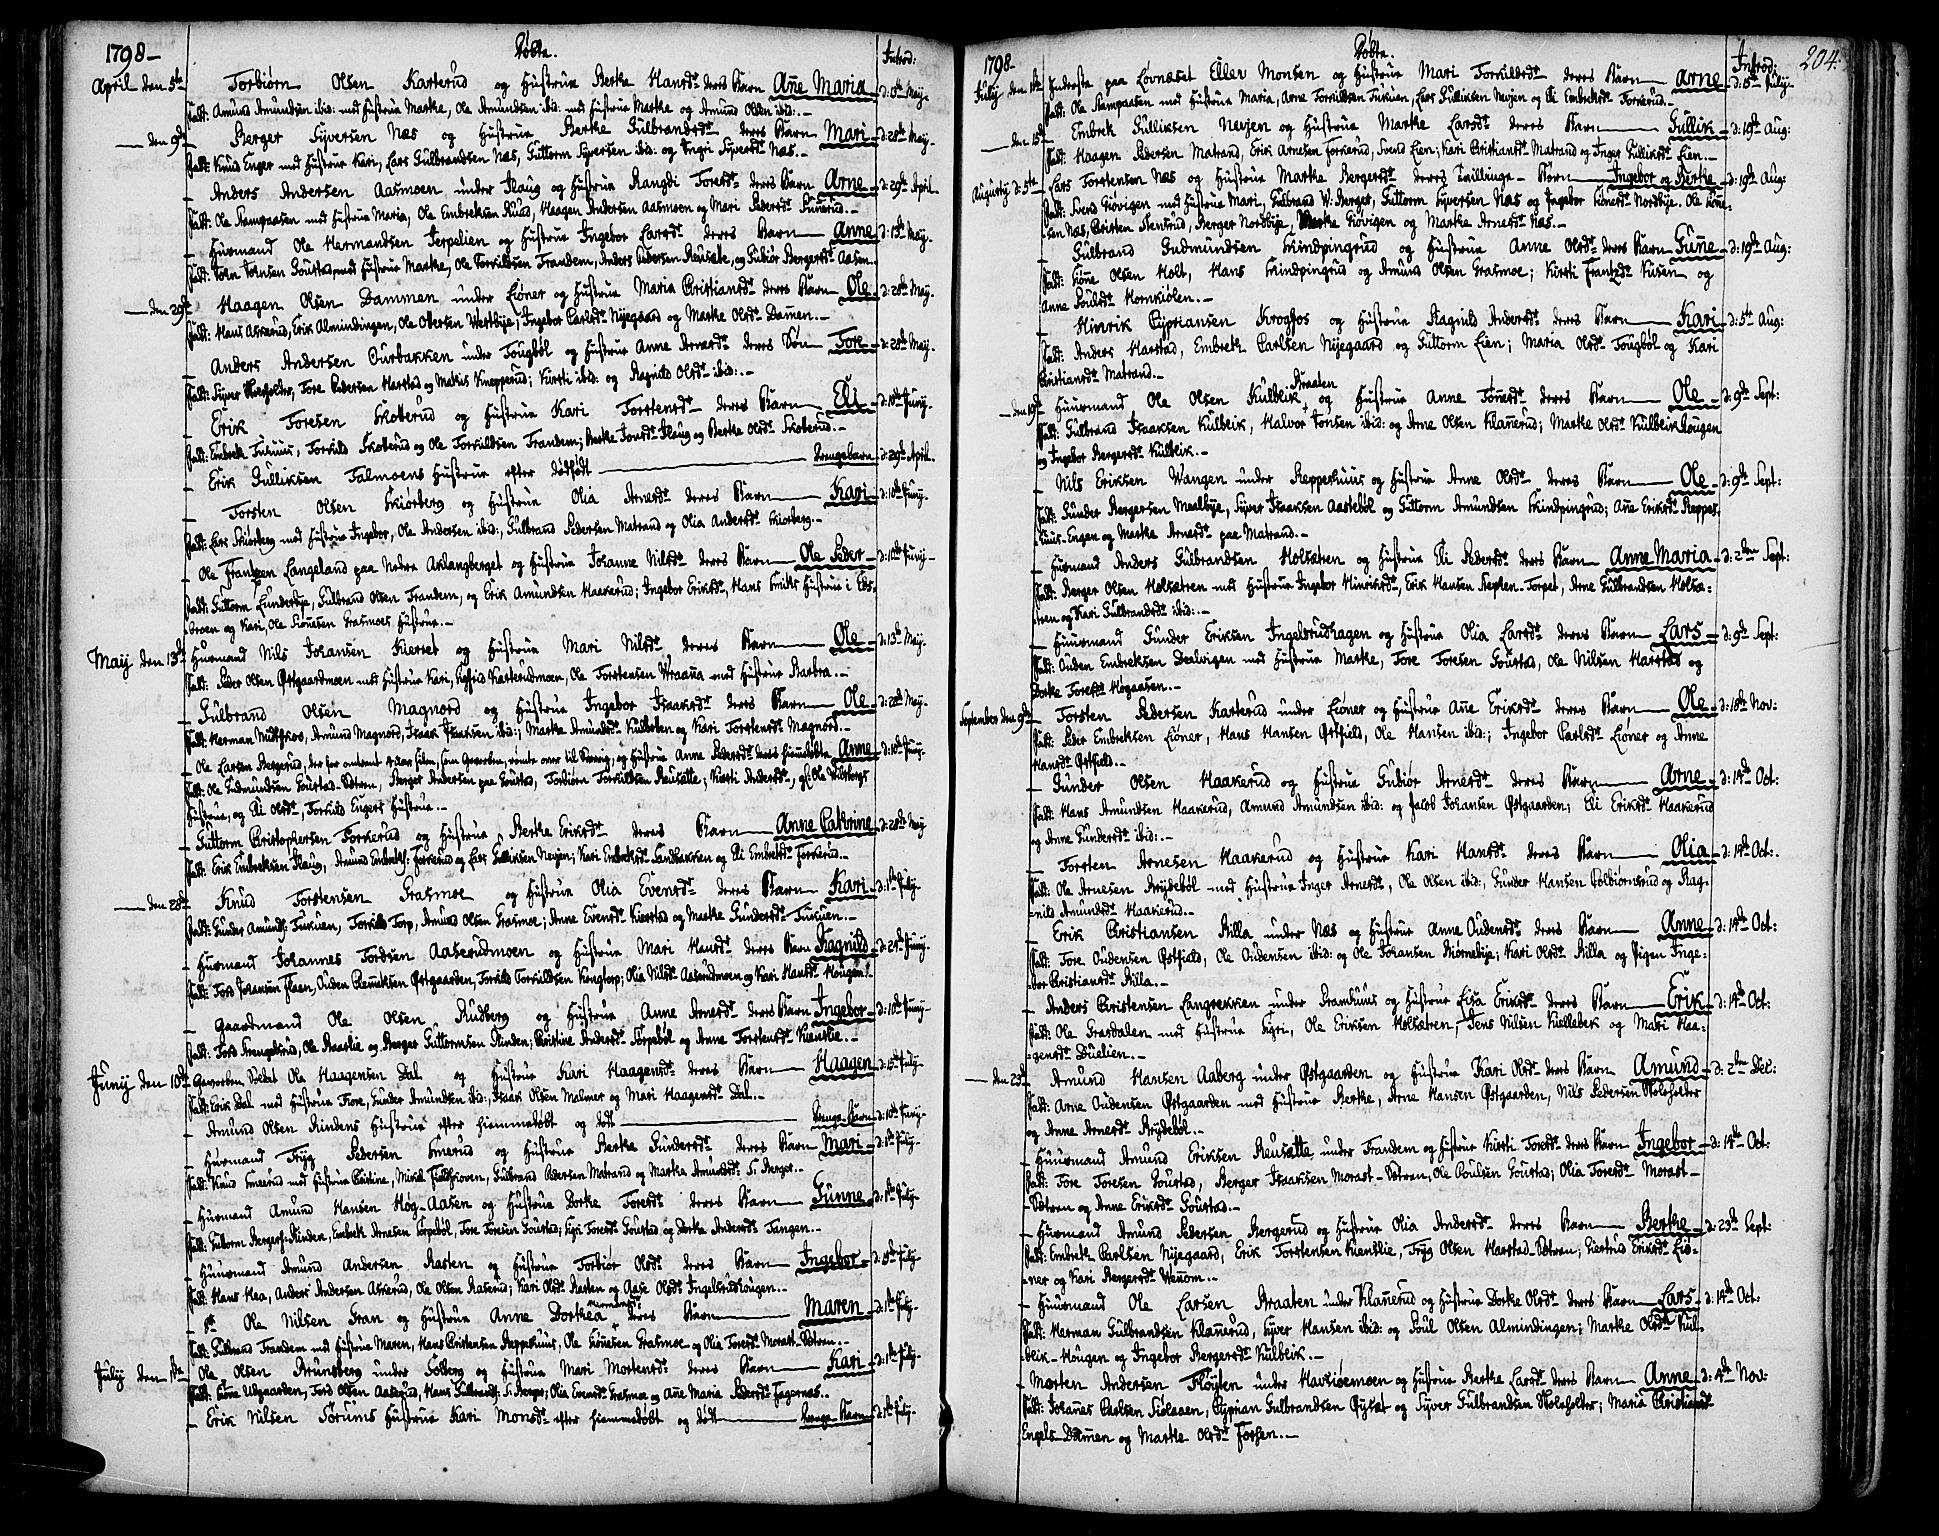 1798 –
Døbte.
Introd:
April den 5te Torbiørn Olsen Karterud og Hustrue Berthe Hansdt: deres Barn Anne Maria d: 18de May.
Fadd: Amund Amundsen ibid: med Hustrue Marthe, Ole Amundsen ibid: med Hustrue Marthe og Amund Olsen ibid: –
den 9de Berger Syversen Næs og Hustrue Berthe Gulbrandsdt: deres Barn Mari d: 28de May.
Fadd: Knud Enger med Hustrue Kari, Lars Gulbrandsen Næs, Guttorm Syversen ibid: og Ingri Syversdt: Næs. –
Anders Andersen Aasmoen under Flaug og Hustrue Rangdi Toresdt: deres Barn Arne d: 29de April.
Fadd: Ole Kampaasen med Hustrue Maria, Ole Embretsen Ruud, Haagen Andersen Aasmoen og Mari Pedersdt:
Huusmand Ole Hermandsen Jerpelien og Hustrue Ingebor Larsdt: deres Barn Anne d: 13de May.
Fadd: John Johnsen Goustad med Hustrue Marthe, Ole Torkildsen Frandem, Anders Pedersen og Gubiør Bergersdt: Aasen.
den 29de Haagen Olsen Dammen under Liøner og Hustrue Maria Christiansdt: deres Barn Ole d: 28de May.
Fadd: Hans Askerud, Erik Almindingen, Ole Olversen Westbye, Ingebor Carlsdt: Nyegaard og Marthe Olsdt: Damen. –
Anders Andersen Ourbakken under Tougbøl og Hustrue Anne Arnesdt: deres Søn Tore d: 28de May.
Fadd: Syver Tore Pedersen Harstad og Mathis Knepperud; Kirsti ibid: og Ragnild Olsdt: ibid: –
Erik Toresen Skoterud og Hustrue Kari Torstensdt: deres Barn Eli d: 10de Juny.
Fadd: Embret Torkild Skoterud og Ole Torkildsen Frandem; Berthe Flaug og Berthe Olsdt: Skoterud. –
Erik Gulliksen Talmoens Hustrue efter dødfødt Drengebarn d: 29de April.
Torsten Olsen Skiørberg og Hustrue Olia Arnesdt: deres Barn Kari d: 10de Juny.
Fadd: Lars Skiørberg med Hustrue Ingebor, Ole Andersen ibid: Gulbrand Pedersen Matrand og Olia Andersdt: Skiorberg –
Ole Frantzen Langeland paa Nedre Aklangberget og Hustrue Johanne Nilsdt: deres Barn Ole Peder d: 10de Juny –
Fadd: Guttorm Gulbrand Olsen Frandem, og Erik Amundsen Haakerud; Ingebor Eriksdt: Hans Hustrue i
og Kari, Ole Grasmoes Hustrue. –
Maij den 13de Huusmand Nils Johansen Kierret og Hustrue Mari Nilsdt: deres Barn Ole d: 13de May.
Fadd: Peder Olsen Østgaardmoen med Hustrue Kari, Karterudmoen, Ole Torstensen med Hustrue Barbra. –
Gulbrand Olsen Magnord og Hustrue Ingebor Isaaksdt: deres Barn Ole d: 28de May.
Fadd: Herman Amund Magnord, Isaak Isaaksen ibid: Marthe Amundsdt: og Kari Torstensdt: Magnord. –
Ole Larsen Bergerud, og Hustrue Anne Pedersdt: Anne d: 10de Juny.
Fadd: Ole Gudmundsen Berger Andersen paa Goustad, Torbiørn Torkildsen Kirsti Andersdt:
Hustrue, og Eli Olsdt: Torkild Engers Hustrue. –
Guttorm Christophersen Torkerud og Hustrue Berthe Eriksdt: deres Barn Anne Cathrine d: 28de May
Fadd: Erik Embretsen Flaug, Amund Torkerud og Lars Gulliksen Nerjen; Kari Sandbakken og Eli Embretsdt: Torkerud. –
den 28de Knud Torstensen Grasmoe og Hustrue Olia Evensdt: deres Barn Kari d: 1ste July.
Fadd: Gunder Torkild Torp, Amund Olsen Grasmoe; Anne Evensdt: Kierstad og Marthe Gundersdt: –
Huusmand Johannes Tordsen Aaserudmoen og Hustrue Mari Hansdt: deres Barn Ragnild d: 24de Juny.
Fadd: Tord Johansen Ouden Østgaarden, Torkild Torkildsen Kongtorp; Olia Nilsdt: Aaserudmoen og Kari Hansdt: Hougen. –
Gaardmand Ole Olsen Rudberg og Hustrue Anne Arnesdt: deres Barn Ingebor d: 10de Juny –
Fadd: Tord Ole og Berger Guttormsen Rinden; Christine Andersdt: og Anne Torstensdt: Kientlie. –
Juny den 10de Gevorben Soldat Ole Haagensen Dal og Hustrue Kari Haagensdt: deres Barn Haagen d: 15de July.
Fadd: Erik Dal med Hustrue Tore, Gunder Amundsen ibid: Isaak Olsen Malmer og Mari Haagensdt: Dal. –
Amund Olsen Rindens Hustrue efter hiemmedøbt og død Drenge-Barn d: 10de Juny.
Huusmand Tryg Pedersen Smerud og Hustrue Berthe Gundersdt: deres Barn Mari d: 1ste July.
Fadd: Knud Smerud med Hustrue Christine, Mikel Gulbrand Pedersen Matrand og Marthe Amundsdt: S. Berget. –
Huusmand Amund Hansen Høg-Aasen og Hustrue Dorthe Toresdt: deres Barn Gunne d: 1ste July.
Fadd: Guttorm Bergers: Rinden, Embret Arnesen Torpebøl, Tore Toresen Goustad; Toresdt: Goustad og Dorthe Andersdt: Tangen. –
Huusmand Amund Andersen Rasten og Hustrue Torbiør Olsdt: deres Barn Ingebor d: 15de July.
Fadd: Hans Anders Andersen Askerud, Ole Olsen Kari Olsdt: Rasten og Aase Olsdt: Ingelsrudhougen. –
Sr Ole Nilsen Gran og Hustrue Anne Dorthea deres Barn Maren d: 1ste July.
Fadd: Gulbrand Frandem med Hustrue Maren, Hans Christensen Ole Grasmoe og Olia Toresdt: Morast-Sætren. –
July den 1ste Ole Olsen Brunsberg under Solberg og Hustrue Mari Mortensdt: deres Barn Kari d: 1ste July.
Fadd: Udgaarden, Tord Olsen Hans Olia Evensdt: Grasmoe og Anne Maria Pedersdt: Fagernæs. –
Erik Nilsen Sørums Hustrue Kari Monsdt: efter hiemmedøbt og død Drenge-Barn d: 1ste July.
1798 –
Døbte.
Introd:
204.
July den 1ste Inderste paa Løvnæset Eller Monsen og Hustrue Mari Torkildsdt: deres Barn Arne d: 15de July.
Fadd: Ole Kampaasen med Hustrue Maria, Arne Torkildsen Lars Gulliksen Nerjen og Eli Embretsdt: Torkerud. –
den 15de Embrek Gulliksen Nerjen og Hustrue Marthe Larsdt: deres Barn Gullik d: 19de Aug:
Fadd: Haagen Pedersen Matrand, Erik Arnesen Torkerud, Svend Lien; Kari Christiansdt: Matrand og Inger Gulliksdt: Lien. –
Augusty d: 5te Lars Torstensen Næs og Hustrue Marthe Bergersdt: deres Tvillinge-Børn Ingebor og Berthe d: 19de Aug:
Fadd: Svend Giøvigen med Hustrue Mari, Gulbrand W: Berget, Guttorm Syversen Næs og Ingebor Nordbye, Ole
sen Næs, Christen Stentrud, Berger Nordbye, Marthe Giøvigen og Marthe Arnesdt: Næs. –
Gulbrand Gudmundsen Skindpingrud og Hustrue Anne Olsdt: deres Barn Gunne d: 19de Aug:
Fadd: Olsen Holt, Hans Skindpingrud og Amund Olsen Grasmoe; Kirsti Frantsdt: og
Anne Poulsdt: Hornkiølen. –
Hinrik Cyprianssen Krogfos og Hustrue Ragnild Andersdt: deres Barn Kari d: 5te Aug:
Fadd: Anders Harstad, Embreth Carlsen Nyegaard og Guttorm Lien; Maria Olsdt: Tougbøl og Kari
Christiansdt: Matrand. –
den 19de Huusmand Ole Olsen Kulblik Braaten og Hustrue Anne deres Barn Ole d: 9de Sept:
Fadd: Gulbrand Isaaksen Kulblik, Halvor Jonsen ibid: og Arne Olsen Klanerud; Marthe Olsdt: Kulblikhougen
og Ingebor Bergersdt: Kulblik. –
Nils Eriksen Wangen under Reppeshuus og Hustrue Anne Olsdt: deres Barn Ole d: 9de Sept:
Fadd: Gunder Bergersen Mealbye, Syver Isaaksen Aastebøl og Guttorm Amundsen Skindpingrud; Ane Eriksdt: Reppes
huus-Engen og Marthe Arnesdt: paa Matrand. –
Huusmand Anders Gulbrandsen Holsætren og Hustrue Eli Pedersdt: deres Barn Anne Maria d: 2den Sept:
Fadd: Berger Olsen Holsætren med Hustrue Ingebor Hinriksdt:, Erik Hansen Torpet, Arne Gulbrandsen Holsæ-
tren og Kari Gulbrandsdt: ibid: –
Huusmand Gunder Eriksen Ingelsrudhagen og Hustrue Olia Larsdt: deres Barn Lars d: 9de Sept:
Fadd: Ouden Embretsen Dealvigen med Hustrue Marthe, Tore Toresen Goustad, Ole Nilsen Harstad og
Dorthe Toresdt: Høgaasen. –
September den 9de Torsten Pedersen Karterud under Liøner og Hustrue Ane Eriksdt: deres Barn Ole d: 18de Nov:
Fadd: Peder Embretsen Liøner, Hans Hansen Østfield, Ole Hansen ibid: Ingebor Carlsdt: Liøner og Anne
Hansdt: Østfield. –
Gunder Olsen Haakerud og Hustrue Gubiør Arnesdt: deres Barn Arne d: 14de Oct:
Fadd: Hans Amundsen Haakerud, Amund Amundsen ibid: og Jacob Johansen Østgaarden; Eli Eriksdt: Haakerud
og Anne Gundersdt: ibid: –
Torsten Arnesen Haakerud og Hustrue Kari Hansdt: deres Barn Olia d: 14de Oct:
Fadd: Ole Arnesen Brydebøl med Hustrue Inger Arnesdt:, Ole Olsen ibid:, Gunder Hansen Colbiørnsrud og Rag-
nild Amundsdt: Haakerud. –
Erik Christiansen Rilla under Næs og Hustrue Anne Oudensdt: deres Barn Anne d: 14de Oct:
Fadd: Tore Oudensen Østfield, Ole Oudensen ibid: og Ole Johansen Kari Olsdt: Rilla og Pigen Inge-
bor Christiansdt: Rilla. –
Anders Christensen Langrekken under og Hustrue Lisa Eriksdt: deres Barn Erik d: 14de Oct:
Fadd: Ole Grasdalen med Hustrue Sigri, Ole Eriksen Holsætren, Jens Nilsen Kiellebek og Mari Haa-
gensdt: Duelien. –
den 23de Amund Hansen Aaberg under Østgaarden og Hustrue Kari Olsdt: deres Barn Amund d: 2den Dec:
Fadd: Arne Oudensen Østgaarden med Hustrue Berthe, Arne Hansen Østgaarden, Nils Pedersen Skoleholder
og Anne Arnesdt: Brydebøl. –
Huusmand Amund Eriksen under Frandem og Hustrue Kirsti Toresdt: deres Barn Ingebor d: 14de Oct:
Fadd: Tore Toresen Goustad, Berger Isaaksen Morast-Sætren, Ole Poulsen Goustad; Olia Toresdt: Morast-
Sætren og Anne Eriksdt: Goustad. –
Huusmand Amund Pedersen Bergerud og Hustrue Olia Andersdt: deres Barn Berthe d: 23de Sept:
Fadd: Embreth Carlsen Nyegaard, Erik Torstensen Kientlie, Tryg Olsen Harstad-Sætren; Eriksdt: Liø-
ner og Kari Bergersdt: –
Huusmand Ole Larsen Braaten under Klanerud og Hustrue Dorthe Olsdt: deres Barn Lars d: 14de Oct:
Fadd: Herman Gulbrandsen Klanerud, Syver Hansen ibid: og Poul Olsen Almindingen; Marthe Olsdt: Kul-
blik-Hougen og Ingebor Bergersdt: Kulbeik. –
Morten Andersen Fløyten under Haviøemoen og Hustrue Berthe Larsdt: deres Barn Anne d: 4de Nov:
Fadd: Johannes Carlsen Siølaaen, Cyprian Gulbrandsen og Syver Gulbrandsen Skoleholder; Maria Christiansdt:
Engels-Damen og Marthe Olsdt: Forsen. –